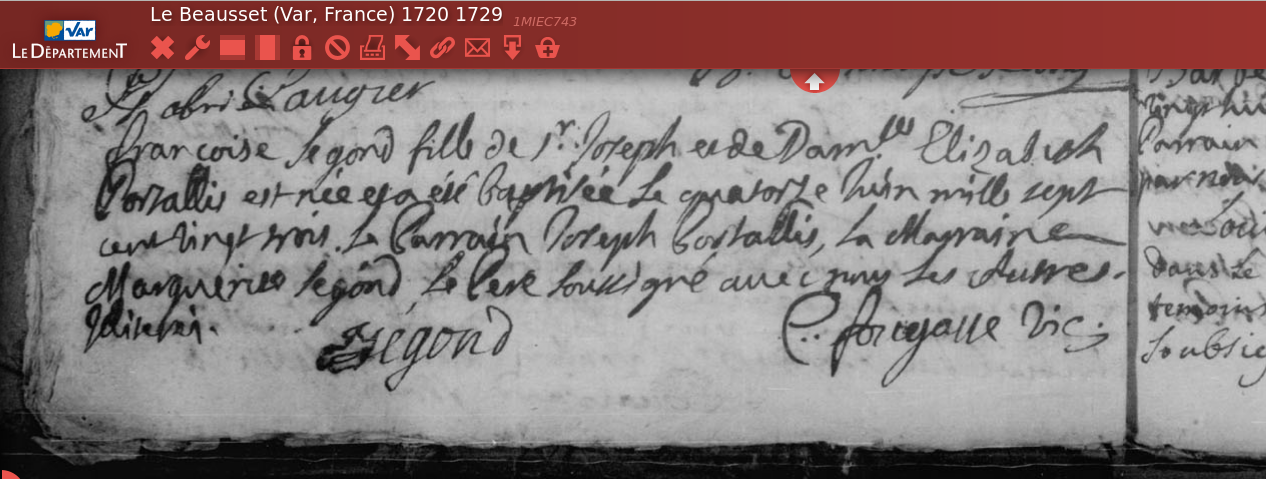 Le Beausset (Var, France) 1720 1729
1MIEC743
VAR
LE DÉPARTEMENT
Laugier
francoise Segond fille de Sr. Joseph et de Damlle Elizabeth
Portallis est née et a été baptisée Le quatorze Juin mille sept
cent vingt trois. Le Parrain Joseph Portallis, La Marraine
Marguerite Segond Le Pere soussigné avec nous Les Autres
illiterés.
Segond
Vic.
Parrain
dans Le
temoins